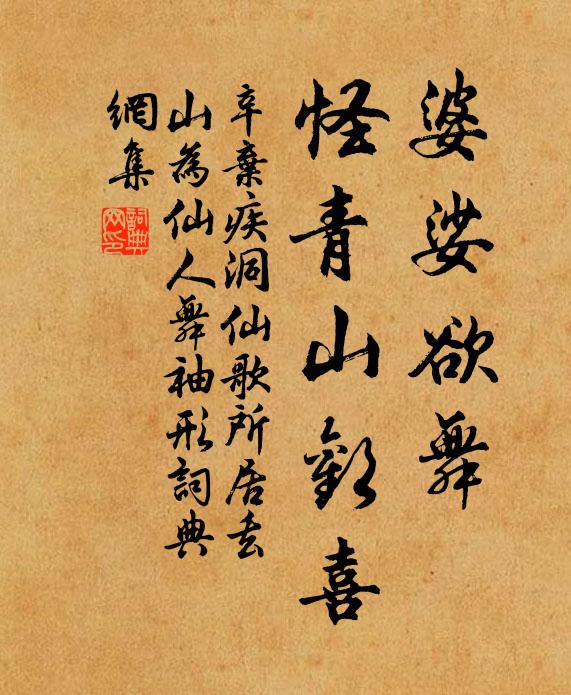 婆娑欲舞
怪青山歡喜
辛棄疾洞仙歌所居丟
山為仙人舞袖形詞典
網集
詞典
网印